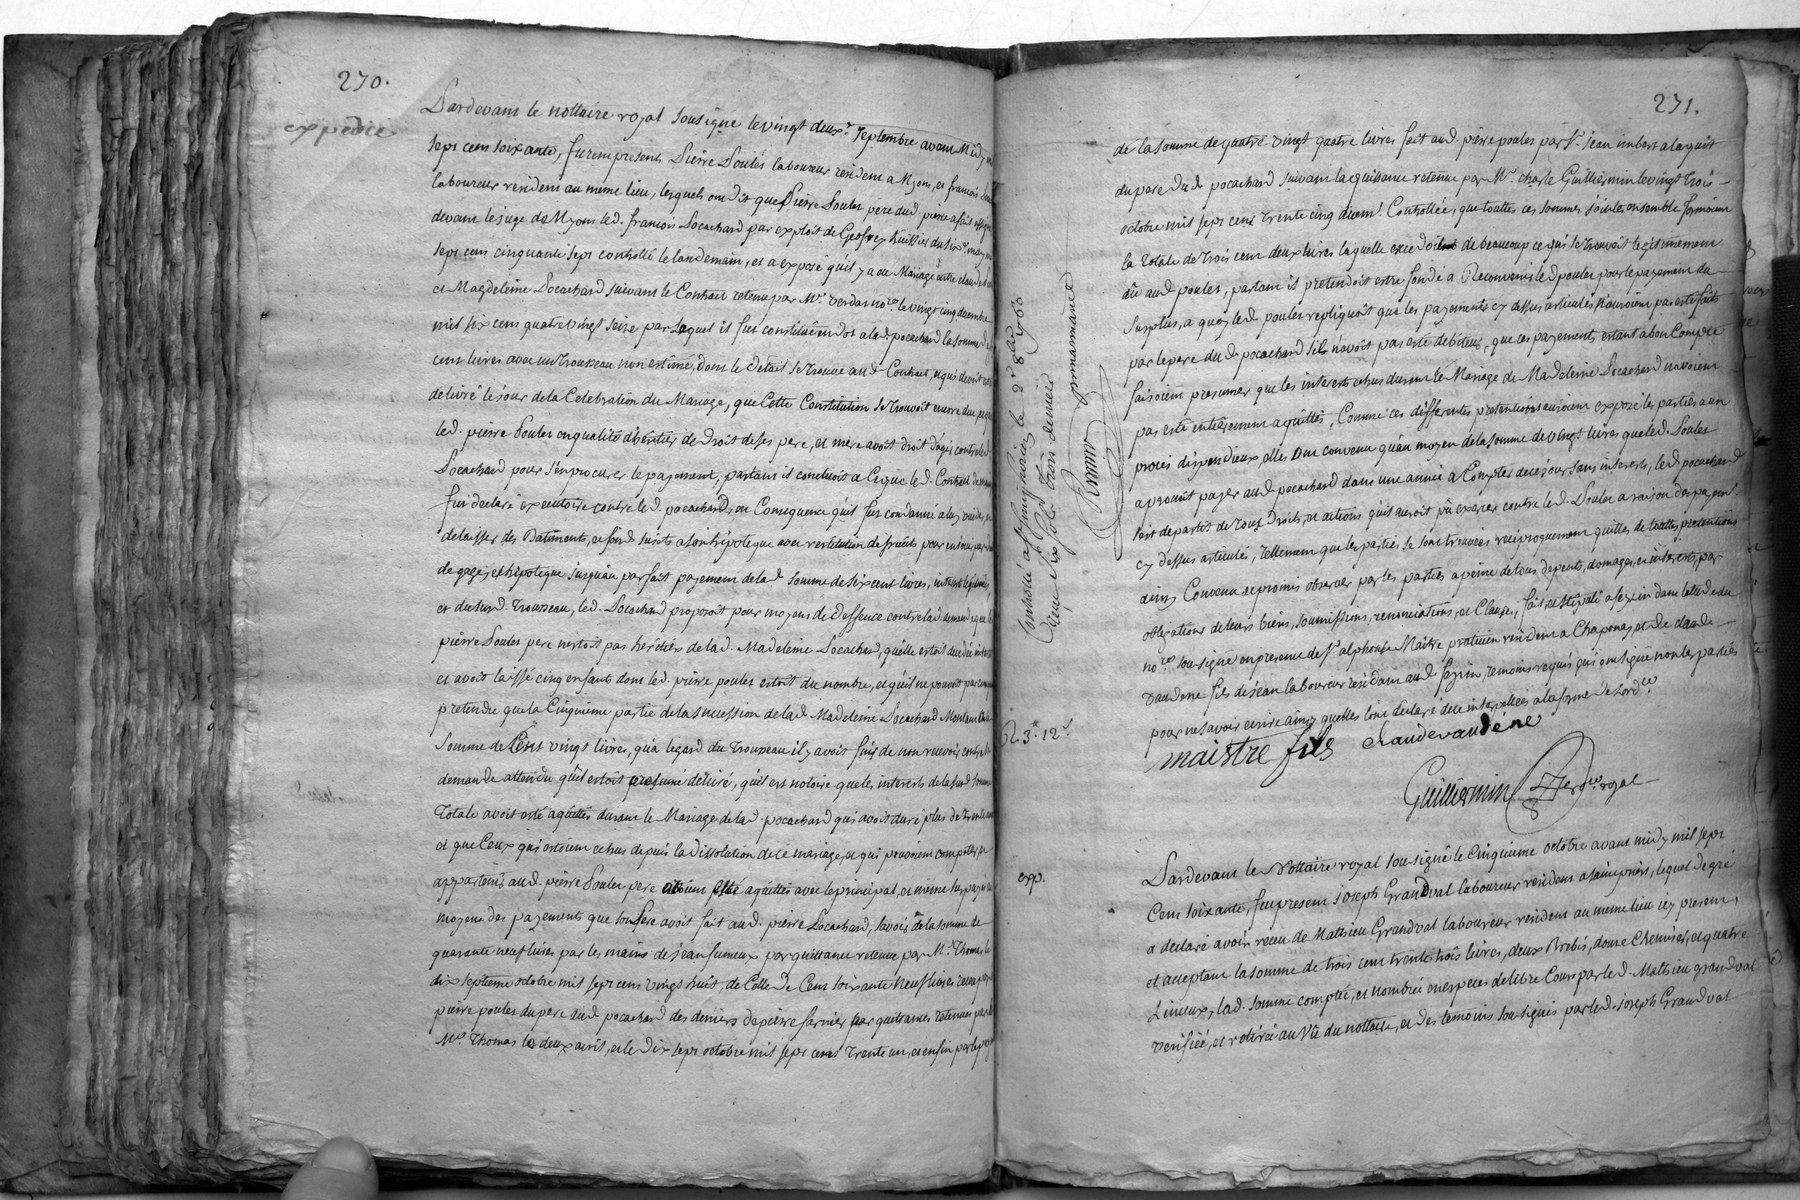 270.
expedié
Pardevant le nottaire royal sousigné le vingt deux.e septembre avant Midy mil
sept cent soixante, furent presents Pierre Poulès laboureur resident a Myons, et francois
laboureur resident au meme lieu, lesquels ont dit que Pierre Poules pere dud. pierre a fait assigner
devant le juge de Myons led. francois Pocachard par exploit de Geofrey huissier du six.e may
sept cent cinquante sept controllé le landemain, et a exposé qu'il y a eu Mariage entre claude
et Magdeleine Pocachard suivant le Contract retenu par M.e Verdat no.re le vingt cinq decembre
mil six cens quatre vingt seize par Laquel il fut constitué en dot a lad. pocachard la somme de
cent livres avec un Trousseau non estimé, dont le détail se trouve aud. Contract, et qui devoit
delivré le jour de la Celebration du Mariage, que Cette Constitution se trouvoit encore due
led. pierre Poules en qualité d'heritier de droit de ses pere, et mere avoit droit d'agir contre led.
Pocachard pour s'en procurer le payement, partant il concluoit a Ce que le d. Contract
fut declaré executoire contre led. pocachard, en Consequence qu'il fut condanné a luy
delaisser des Batiments, et fonds sujets a son hipoteque avec restitution de fruits pour en jouir par
de gage, et hipoteque jusqu'au parfait payement de lad. somme de six cent livres, interests
et du surd. Trousseau, led. Pocachard proposoit pour moyens de deffence contre lad. demande que
pierre Poules pere n'estoit pas heritier de lad. Madeleine Pocachard, qu'elle estoit decedée
et avoit laissé cinq enfants dont led. pierre poules estoit du nombre, et qu'il ne pouvoit par
pretendre que la Cinquieme partie de la succession de lad. Madeleine Pocachard Montant
somme de Cent vingt livres, qu'a legard du Trousseau il y avoit fais de non recevoir contre
demande attendu qu'il estoit presumé délivré, qu'il est notoire que les interests de la sud. somme
Totale avoit esté aquittés durant le Mariage de lad. pocachard qui avoit duré plus de trente
et que Ceux qui estoient echus depuis la dissolution de ce mariage, et qui pouvoient compter, et
appartenir aud. pierre Poules pere avoient esté aquittés avec le principal, et même surpayés
moyens des payements que son pere avoit fait aud. pierre Pocachard, savoir de la somme de
quarante neuf livres par les mains de jean fumeux par quittance retenue par M.e Thomas le
dix septieme octobre mil sept cens vingt huit, de Celle de Cent soixante neuf livres
pierre poules du pere dud. pocachard des deniers de pierre farnier par quittances retenues par
M.e Thomas le deux avril, et le dix sept octobre mil sept cens Trente un, et enfin par le
271.
de la somme de quatre vingt quatre livres fait aud. pierre poules par S.r jean imbert a laquit
du pere dud. pocachard suivant la quittance retenue par M.e charle Guillermin le vingt trois
octobre mil sept cens Trente cinq duem.t Controllée, que touttes ces sommes jointes ensemble formoient
la totale de Trois cent deux livres laquelle excedoit de beaucoup ce qui se trouvoit legitimement
dû aud. poules, partant il pretendoit estre fondé a Reconvenir led. poules pour le payement du
surplus, a quoy led. poules repliquoit que les payements cy dessus articulés n'auroient pas esté faits
par le pere dud. pocachard s'il n'avoit pas esté debiteur, que ces payements estant a bon Compte
faisoient presumer que les interests echus durant le Mariage de Madeleine Pocachard n'avoient
pas esté entierement aquittés, Comme ces differentes pretentions auroient exposé les parties a un
procés dispendieux elles ont convenu qu'au moyen de la somme de vingt livres que led. Poules
a promit payer aud. pocachard dans une année a Compter de ce jour sans interests, led. pocachard
s'est departit de tous droits, et actions qu'il auroit pû exercer contre led. Poules a raison des payem.ts
cy dessus articulés, tellement que les parties se sont trouvées reciproquement quittes de touttes pretentions
ainsy Convenu et promis observer par les parties a peine de tous depents, domages, et interests, par
obligations de leurs biens, soumissions, renonciations, et Clauses, fait, et stipulé a feyzin dans letude du
no.re sousigné en presence de S.r alphonse Maitre praticien resident a Chaponay, et de claude
vaudene fils de jean laboureur resident aud. feyzin, temoins requis qui ont signé non les parties
pour ne savoir ecrire ainsy quelles l'ont declaré de ce interpellées a la forme de lord.ce
maistre fils
claude vaudéne
Guillermin no.re royal
Controllé a Simphorien le 2.e 8bre 1760
Reçu six sols trois deniers
R. 3# 12s
exp.
Pardevant le Nottaire royal sousigné le Cinquieme octobre avant midy mil sept
Cent soixante, fut present joseph Grandval laboureur resident a saint priest, lequel de gré
a declaré avoir receu de Mathieu Grandval laboureur resident au meme lieu icy present,
et acceptant la somme de trois cent trente trois livres, deux Brebis, douze Chemises, et quatre
Linceux, lad. somme comptée, et nombrée en especes de libre Cours par led. Mathieu grandval
verifiée, et retirée au vû du nottaire, et des temoins sousignés par led. joseph Grandval